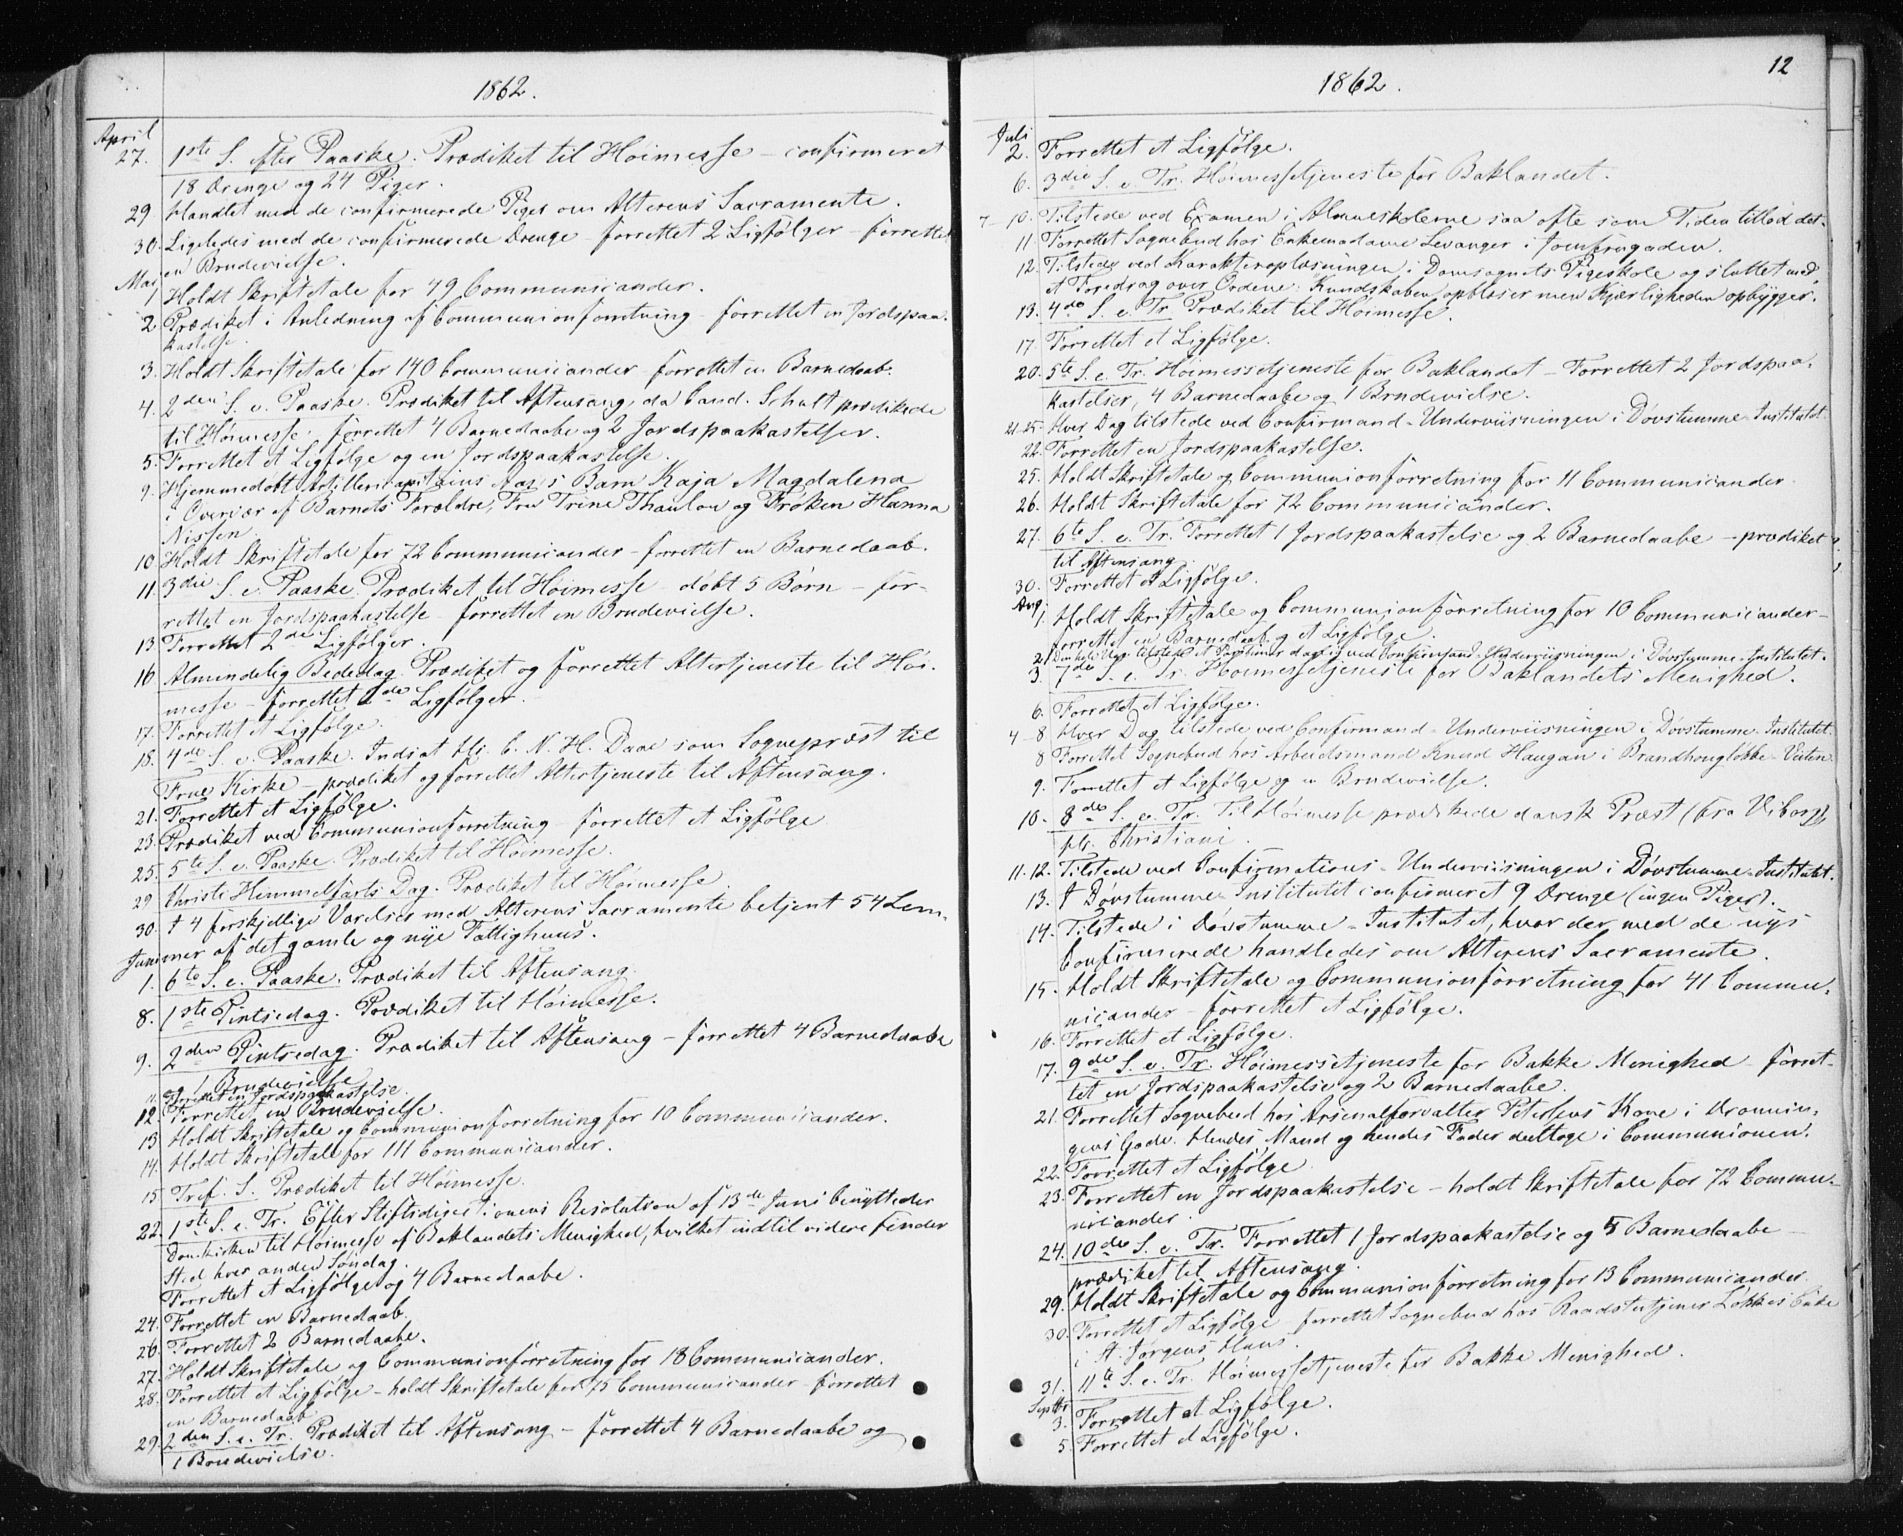 1862.
April
27. 1ste S. efter Paaske. Prædiket til Høimesse – confirmeret
18 Drenge og 24 Piger.
29 Handlet med de confirmerede Piger om Alterens Sacramente.
30. Ligeledes med de confirmerede Drenge – forrettet 2 Ligfølger – forrettet
en Brudevielse.
Mai
1 Holdt Skriftetale for 49 Communicander.
2 Prædiket i Anledning af Communionforretning – forrettet en Jordspaa-
kastelse.
3. Holdt Skriftetale for 140 Communicander – forrettet en Barnedaab.
4. 2den S. e. Paaske. Prædiket til Aftensang, da Cand. Schult prædikede
til Høimesse. forrettet 4 Barnedaabe og 2 Jordspaakastelser.
5. Forrettet et Ligfølge og en Jordspaakastelse.
9. Hjemmedøbt Artillericapitains Barn Kaja Magdalena
i Overvær af Barnets Forældre, Fru Trine Thaulow og Frøken Hanna
Nissen.
10 Holdt Skriftetale for 72 Communicander – forrettet en Barnedaab.
11. 3die S. e. Paaske. Prædiket til Høimesse – døbt 5 Børn – for-
rettet en Jordspaakastelse – forrettet en Brudevielse.
13. Forrettet 2de Ligfølger.
16 Almindelig Bededag. Prædiket og forrettet Altertjeneste til Høi-
messe – forrettet 2de Ligfølger.
17. Forrettet et Ligfølge.
18. 4de S. e. Paaske. Indsat Hr. C. N. H. Daae som Sognepræst til
Frue Kirke – prædiket og forrettet Altertjeneste til Aftensang.
21. Forrettet et Ligfølge.
23. Prædiket ved Communionforretning – forrettet et Ligfølge
25. 5te S. e. Paaske. Prædiket til Høimesse.
29 Christi Himmelfarts Dag. Prædiket til Høimesse.
30. I 4 forskjellige Værelser med Alterens Sacramente betjent 54 Lem-
mer af det gamle og nye Fattighuus.
Juni
1. 6te S. e. Paaske. Prædiket til Aftensang.
8. 1ste Pintsedag. Prædiket til Høimesse.
9. 2den Pintsedag. Prædiket til Aftensang – forrettet 4 Barnedaabe
og 1 Brudevielse.
11. Forrettet en Jordspaakastelse.
12. Forrettet en Brudevielse.
13 Holdt Skriftetale og Communionforretning for 10 Communicander.
14. Holdt Skriftetale for 111 Communicander.
15 Tref. S. Prædiket til Høimesse.
22. 1ste S. e. Tr. Efter Stiftsdirectionens Resolution af 13de Juni benyttedes
Domkirken til Høimesse af Baklandets Menighed, hvilket indtil videre finder
Sted hver anden Søndag.
Forrettet et Ligfølge og 4 Barnedaabe.
24. Forrettet en Barnedaab.
26. Forrettet 2 Barnedaabe.
27. Holdt Skriftetale og Communionforretning for 18 Communicander.
28. Forrettet et Ligfølge – holdt Skriftetale for 75 Communicander – forrettet
en Barnedaab.
29. 2den S. e. Tr. Prædiket til Aftensang – forrettet 4 Barnedaabe og
1 Brudevielse.
1862.
12
Juli
2. Forrettet et Ligfølge.
6. 3die S. e. Tr. Høimessetjeneste for Baklandet.
7–10. Tilstede ved Examen i Almueskolerne saa ofte som Tiden tillod det.
11. Forrettet Sognebud hos Enkemadame Levanger i Jomfrugaden.
12. Tilstede ved Karakteroplæsningen i Domsognets Pigeskole og sluttet med
et Foredrag over Ordene: Kundskaben opblæser men Kjærligheden opbygger.
13. 4de S. e. Tr. Prædiket til Høimesse.
17. Forrettet et Ligfølge.
20. 5te S. e. Tr. Høimessetjeneste for Baklandet – Forrettet 2 Jordspaa-
kastelser, 4 Barnedaabe og 1 Brudevielse.
21-25. Hver Dag tilstede ved Confirmand-Underviisningen i Døvstumme-Institutet
22. Forrettet en Jordspaakastelse.
25. Holdt Skriftetale og Communionforretning for 11 Communicander.
26. Holdt Skriftetale for 72 Communicander.
27. 6te S. e. Tr. Forrettet 1 Jordspaakastelse og 2 Barnedaabe – prædiket
til Aftensang.
30. Forrettet et Ligfølge.
Aug.
1. Holdt Skriftetale og Communionforretning for 10 Communicander –
forrettet en Barnedaab og et Ligfølge.
2. tilstede ved Confirmand-Underviisningen i Døvstumme-Institutet.
3. 7de S. e. Tr. Høimessetjeneste for Baklandets Menighed.
6. Forrettet et Ligfølge.
4–8. Hver Dag tilstede ved Confirmand-Underviisningen i Døvstumme-Institutet.
8 Forrettet Sognebud hos Arbeidsmand Knud Haugan i
9. Forrettet et Ligfølge og en Brudevielse.
10. 8de S. e. Tr. Til Høimesse prædikede dansk Præst (fra Viborg)
Hr. Christiani.
11. 12. Tilstede ved Confirmations-Underviisningen i Døvstumme-Institutet.
13. I Døvstumme-Institutet confirmeret 9 Drenge (ingen Piger).
14. Tilstede i Døvstumme-Institutet, hvor der med de nys
Confirmerede handledes om Alterens Sacramente.
15. Holdt Skriftetale og Communionforretning for 41 Commu-
nicander – forrettet et Ligfølge.
16. Forrettet et Ligfølge.
17. 9de S. e. Tr. Høimessetjeneste for Bakke Menighed – forret-
tet en Jordspaakastelse og 2 Barnedaabe.
21. Forrettet Sognebud hos Arsenalforvalter Petersens Kone i Dronnin-
gens Gade. Hendes Mand og hendes Fader deeltoge i Communionen.
22. Forrettet et Ligfølge.
23. Forrettet en Jordspaakastelse – holdt Skriftetale for 72 Commu-
nicander.
24. 10de S. e. Tr. Forrettet 1 Jordspaakastelse og 5 Barnedaabe –
prædiket til Aftensang.
29. Holdt Skriftetale og Communionforretning for 13 Communicander.
30. Forrettet et Ligfølge – forrettet Sognebud hos Raadstutjener Løkkes Enke
i St. Jørgens Huus.
31. 11te S. e. Tr. Høimessetjeneste for Bakke Menighed.
Septbr
3. Forrettet et Ligfølge.
5. Forrettet et Ligfølge.